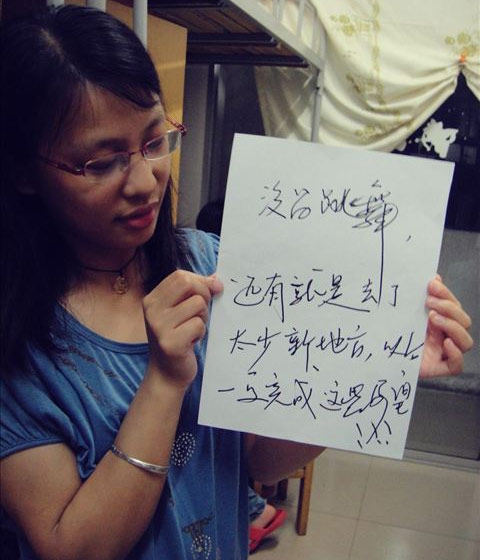 没学跳舞，
还有就是去了
太少新地方，以后
一定完成这些愿望